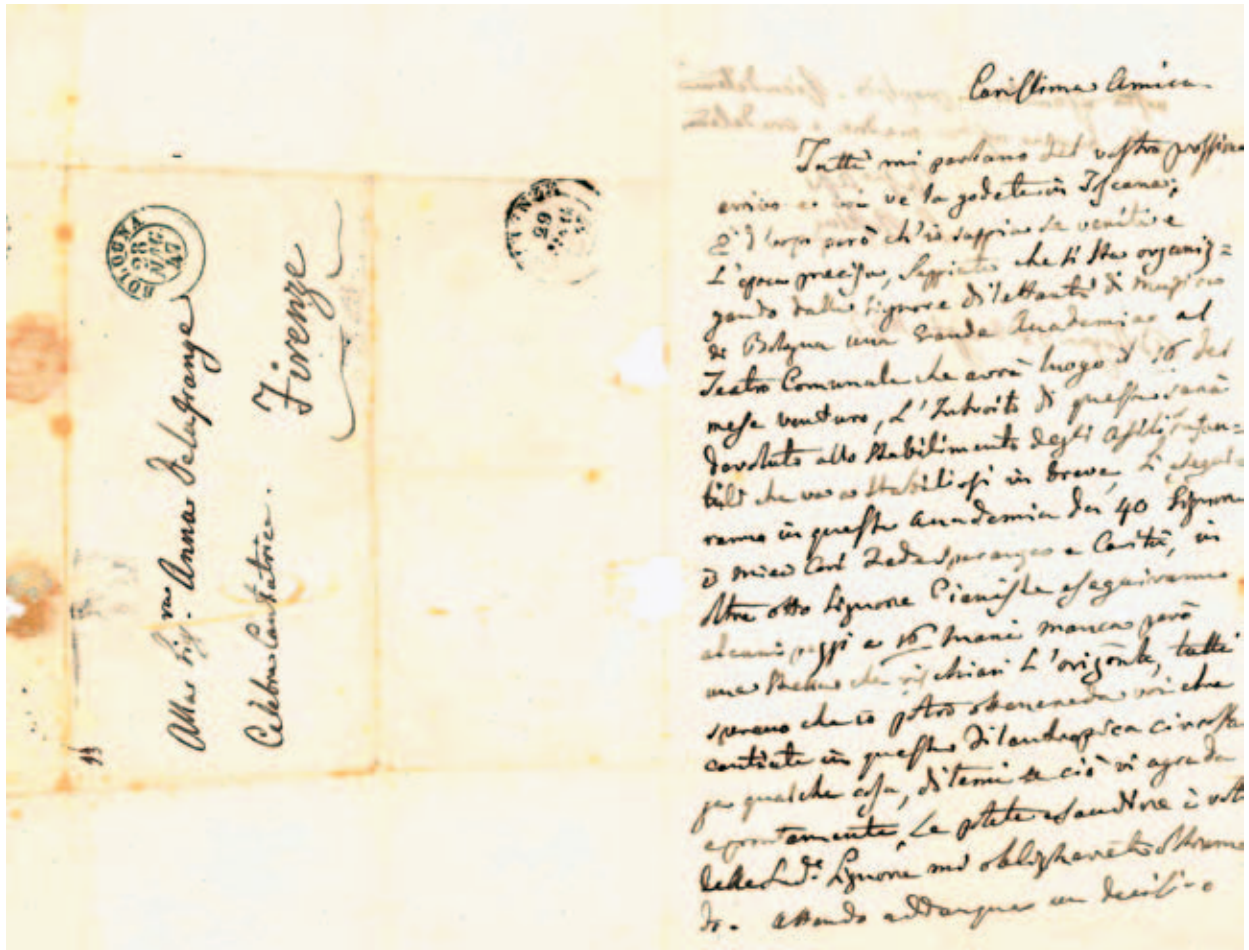 BOLOGNA
28
MAG
47
29
Alla Sig.ra Anna Delagrange
Celebre Cantatrice.
Firenze
Carissima Amica
Tutti mi parlano del vostro prossimo
arrivo e voi ve la godete in Toscana;
È d'uopo però ch'io sappia se venite e
L'epoca precisa, Sappiate che si sta organiz=
zando dalle Signore dilettanti di Musica
di Bologna una Grande Accademia al
Teatro Comunale che avrà luogo il 16 del
mese venturo, L'Introito di questa sarà
devoluto allo Stabilimento degli Asili infan=
tili che va a stabilirsi in breve, Si esegui
ranno in questa Accademia da 40 Signore
i miei Cori Fede Speranza e Carità, in
oltre otto Signore Pianiste eseguiranno
alcuni pezzi a 16 Mani manca però
una Stella che rischiari L'orizonte, tutti
sperano che io potrò ottenere da voi che
cantiate in questa filantropica circosta
za qualche cosa, ditemi se ciò vi agrada
e prontamente, Se potete esaudire i voti
delle Sud.e Signore mi obligherete
do. Attendo addunque un